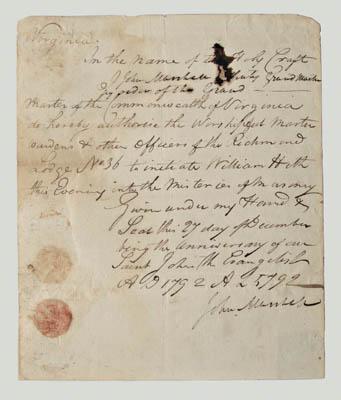 Virginia
In the name of the Holy Craft
I John Marshall Deputy Grand Master
by order of the Grand
Master of the Commonwealth of Virginia
do hereby authorise the Worshipful Master
wardens & other Officers of the Richmond
Lodge No 36 to initiate William Heth
this Evening into the Misteries of Masonry
Given under my Hand &
Seal this 27 day of December
being the anniversary of our
Saint John the Evangelist
AD 1792 AL 5792
John Marshall